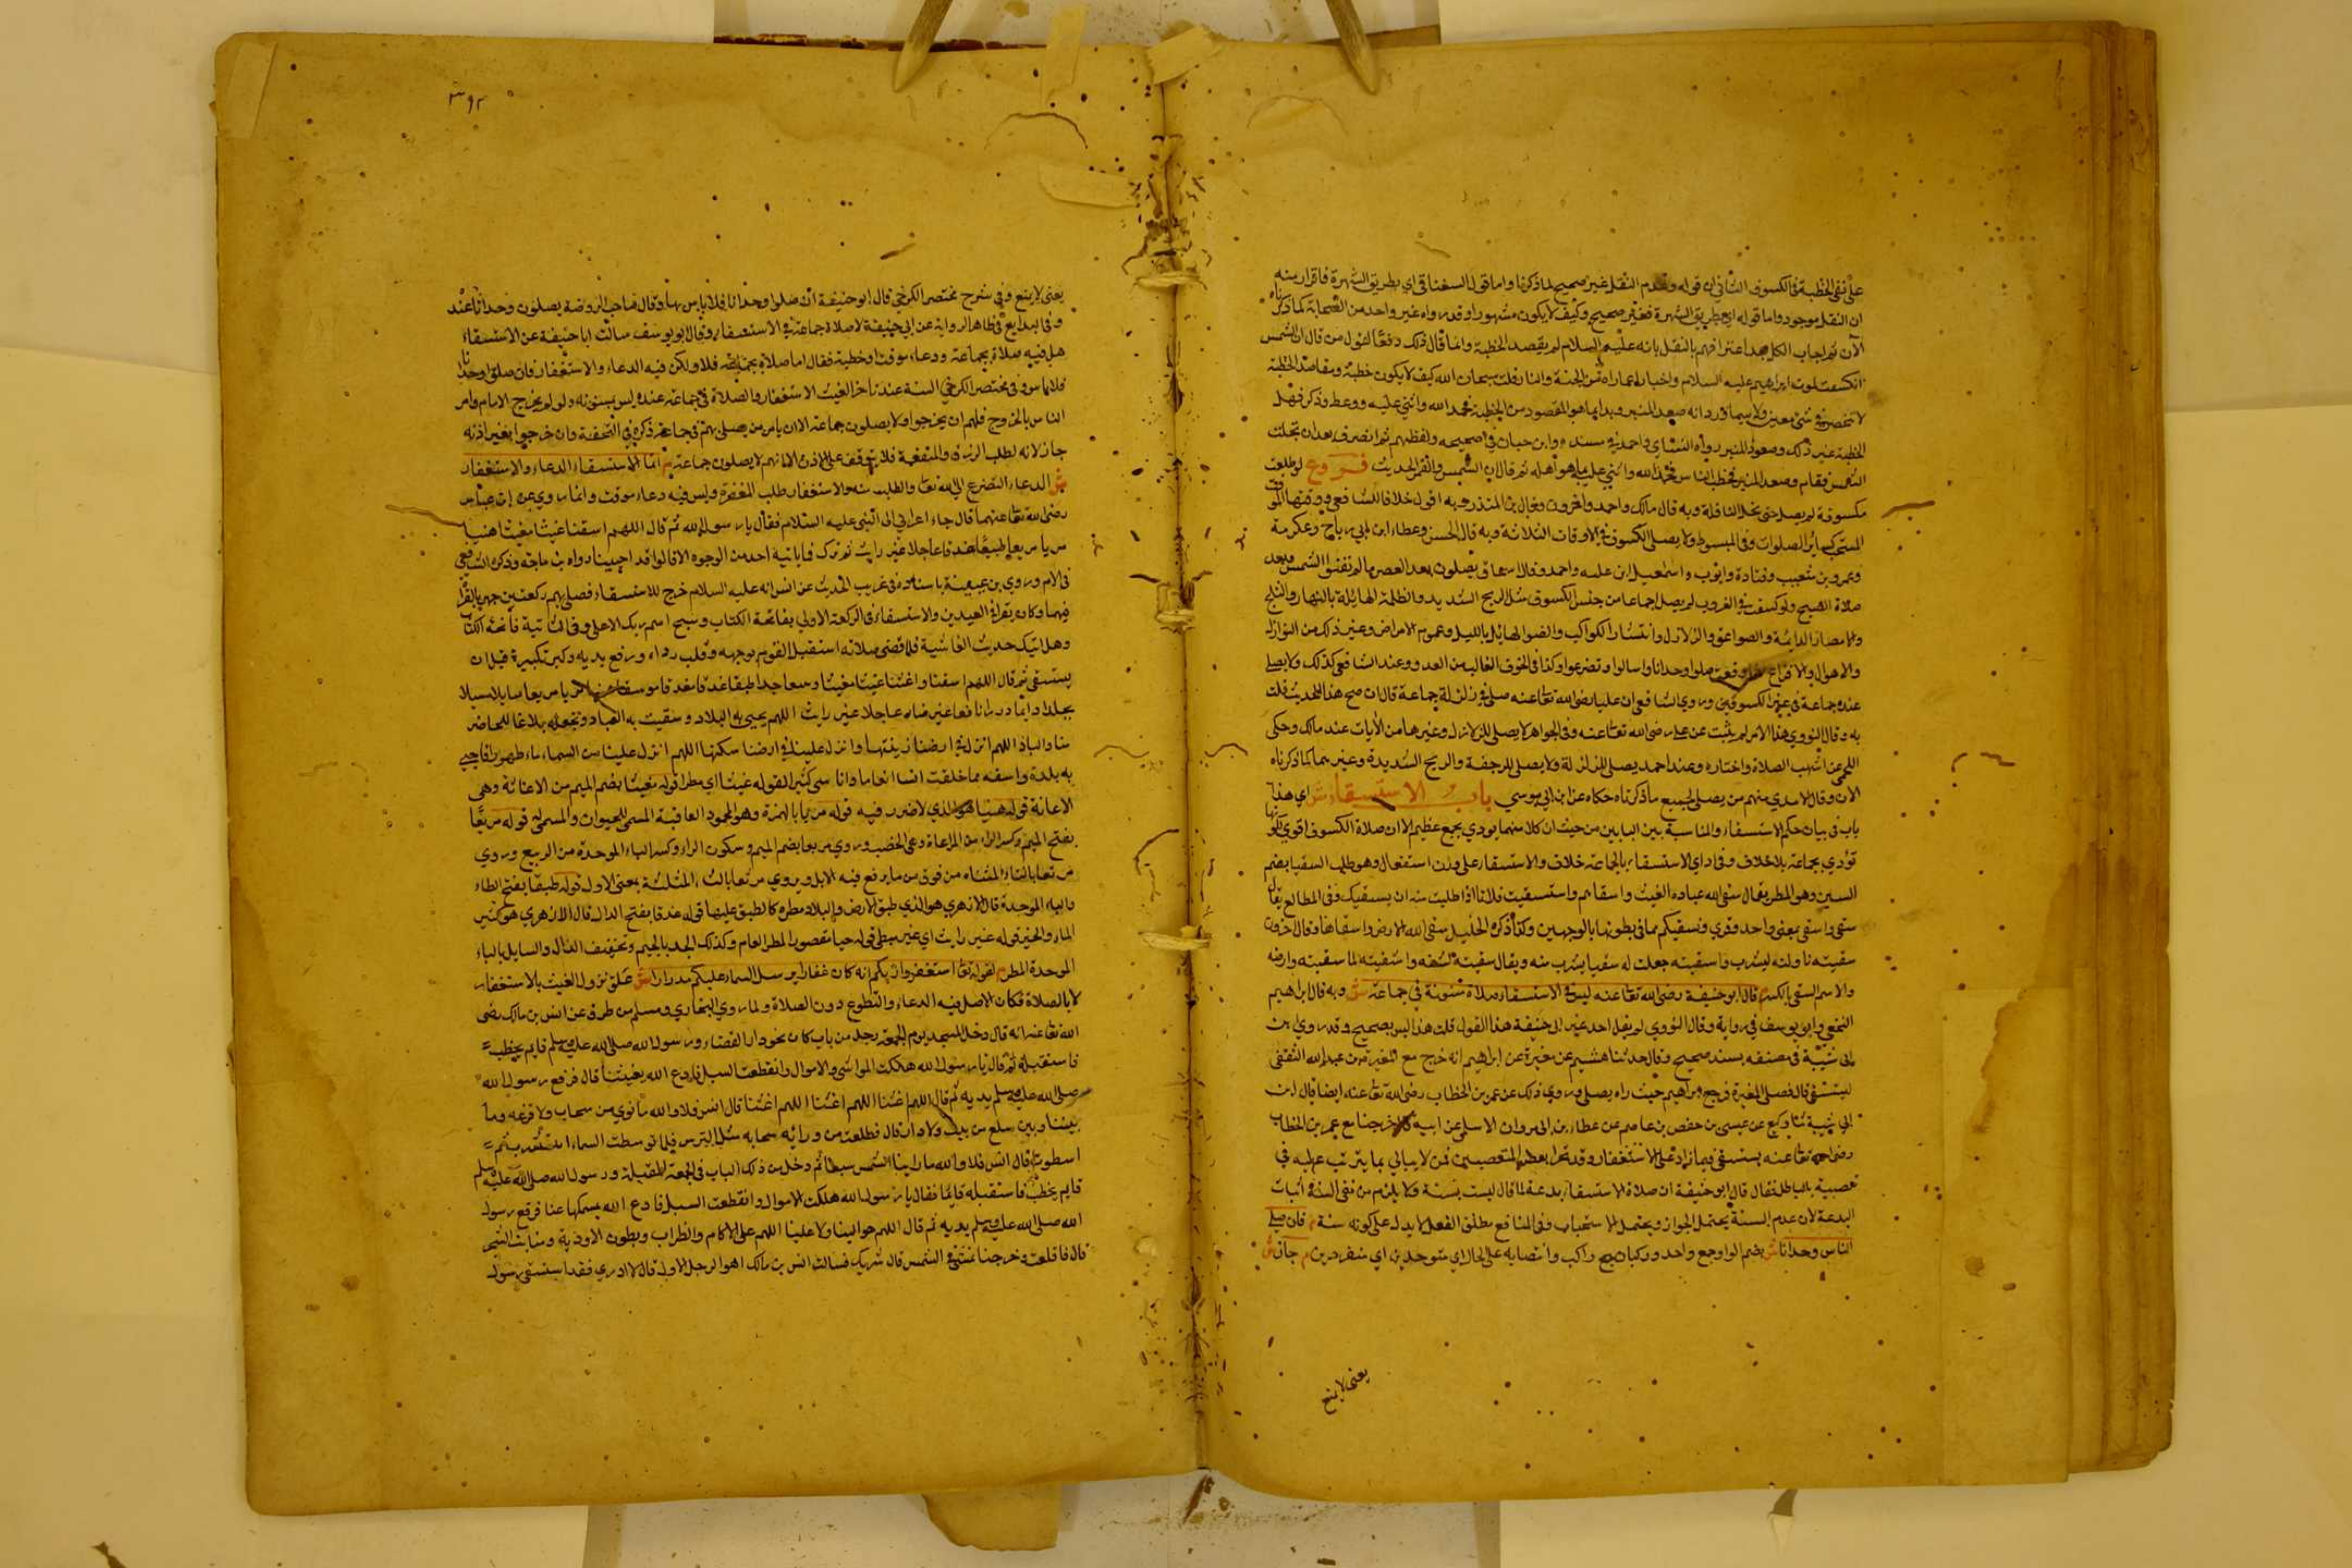 على نفي الخطبة في الكسوف الثاني ان قوله وعدم النقل غير صحيح لما ذكرنا واما قول السغناقي اي بطريق الشهرة فاقرار منه
ان النقل موجود واما قوله اي بطريق الشهرة فغير صحيح وكيف لا يكون مشهورا وقد رواه غير واحد من الصحابة كما ذكرناه
الآن ثم اجاب الكل بعد اعترافهم بالنقل بانه عليه السلام لم يقصد الخطبة وانما قال ذلك دفعا لقول من قال ان الشمس
انكسفت لموت ابراهيم عليه السلام واخبارا عما راه من الجنة والنار قلت سبحان الله كيف لا يكون خطبة ومقاصد الخطبة
لا تنحصر في شيء معين ولا سيما قد ورد انه صعد المنبر وبدا بما هو المقصود من الخطبة فحمد الله واثنى عليه ووعظ وذكر فهل
الخطبة غير ذلك وصعود المنبر رواه النسائي واحمد في مسنده وابن حبان في صحيحه ولفظهم ثم انصرف بعد ان تجلت
الشمس فقام وصعد المنبر فخطب الناس فحمد الله واثنى عليه بما هو اهله ثم قال ان الشمس والقمر الحديث فروع لو طلعت
مكسوفة لم يصل حتى تحل النافلة وبه قال مالك واحمد واخرون وقال ابن المنذر وبه اقول خلافا للشافعي ووقتها الموقت
المستحب كسائر الصلوات وفي المبسوط ولا يصلى الكسوف في الاوقات الثلاثة وبه قال الحسن وعطاء ابن ابي رباح وعكرمة
وعمرو بن شعيب وقتادة وايوب واسمعيل ابن علية واحمد وقال اسحاق يصلون بعد العصر ما لم تصفر الشمس وبعد
صلاة الصبح ولو كسفت في الغروب لم يصل اجماعا من جنس الكسوف مثل الريح الشديد والظلمة الهايلة بالنهار والثلج
والامصار الدائمة والصواعق والزلازل وانتشار الكواكب والضوء الهايل بالليل وعموم الامراض وغير ذلك من النوازل
والاهوال والافزاع اذا وقعت صلوا وحدانا واسالوا وتضرعوا وكذا في الخوف الغالب من العدو وعند الشافعي كذلك ولا يصلي
عنده جماعة في غير الكسوفين وروي الشافعي ان عليا رضي الله تعا عنه صلى في زلزلة جماعة قال ان صح هذا الحديث قلت
به وقال النووي هذا الاثر لم يثبت عن علي رضي الله تعا عنه وفي الجواهر لا يصلى للزلازل وغيرها من الآيات عند مالك وحكى
اللخمي عن اشهب الصلاة واختاره وعند احمد يصلى للزلزلة ولا يصلى للرجفة والريح الشديدة وغيرهما كما ذكرناه
الان وقال الامدي منهم من يصلى لجميع ما ذكرناه حكاه عن ابن ابي موسى باب الاستسقاء ش اي هذا
باب في بيان حكم الاستسقاء والمناسبة بين البابين من حيث ان كلا منهما يودي بجمع عظيم الا ان صلاة الكسوف اقوى لكونها
تؤدي بجماعة بلا خلاف وفي اداي الاستسقاء بالجماعة خلاف والاستسقاء على وزن استفعال وهو طلب السقيا بضم
السين وهو المطر يقال سقى الله عباده الغيث واسقاهم واستسقيت فلانا اذا طلبت منه ان يسقيك وفي المطالع يقال
سقى واسقى بمعنى واحد وقري ونسقيكم مما في بطونها بالوجهين وكذا ذكره الخليل سقى الله الارض واسقاها وقال اخرون
سقيته ناولته ليشرب واسقيته جعلت له سقيا يشرب منه ويقال سقيته لشفته واسقيته لما سقيته وارضه
والاسم السقي بالكسر م قال ابو حنيفة رضي الله تعا عنه ليس في الاستسقاء صلاة مسنونة في جماعة ش وبه قال ابراهيم
النخعي وابو يوسف في رواية وقال النووي لم يقل احد غير ابي حنيفة هذا القول قلت هذا ليس بصحيح وقد روي ابن
ابي شيبة في مصنفه بسند صحيح وقال حدثنا هشيم عن مغيرة عن ابراهيم انه خرج مع المغيرة بن عبد الله الثقفي
ليستسقي قال فصلى المغيرة فرجع ابراهيم حيث راه يصلي وروي ذلك عن عمر بن الخطاب رضي الله تعا عنه ايضا قال ابن
ابي شيبة ثنا وكيع عن عيسى بن حفص بن عاصم عن عطاء بن ابي مروان الاسلمي عن ابيه قال خرجنا مع عمر بن الخطاب
رضي الله تعا عنه يستسقي فما زاد على الاستغفار وقد تجرا بعض المتعصبين ممن لا يبالي بما يترتب عليه في
تعصبه بالباطل فقال قال ابو حنيفة ان صلاة الاستسقاء بدعة لما قال ليست بسنة ولا يلزم من نفي السنة اثبات
البدعة لان عدم السنة يحتمل الجواز ويحتمل الاستحباب وفي المنافع مطلق الفعل لا يدل على كونه سنة م فان صلى
الناس وحدانا ش بضم الواو جمع واحد وركبان جمع راكب وانتصابه على الحال اي متوحدين اي منفردين م جاز ش
يعني لا يمنع
٣٩٢
يعني لا يمنع وفي شرح مختصر الكرخي قال ابو حنيفة ان صلوا وحدانا فلا باس بها وقال صاحب الروضة يصلون وحدانا عند
وفي البدايع في ظاهر الرواية عن ابي حنيفة لا صلاة جماعة في الاستسقاء وقال ابو يوسف سالت ابا حنيفة عن الاستسقاء
هل فيه صلاة بجماعة ودعاء موقت او خطبة فقال اما صلاة بجماعة فلا ولكن فيه الدعاء والاستغفار فان صلوا وحدانا
فلا باس وفي مختصر الكرخي السنة عندنا آخر الغيث الاستغفار والصلاة في جماعة عنده ليس بمسنونة ولو لم يخرج الامام وامر
الناس بالخروج فلهم ان يخرجوا ولا يصلون جماعة الا ان يامر من يصلي بهم في جماعة ذكره في التحفة وان خرجوا بغير اذنه
جاز لانه لطلب الرزق والمنفعة فلا يتوقف على الاذن الا انهم لا يصلون جماعة م انما الاستسقاء الدعاء والاستغفار
ش الدعاء التضرع الى الله تعا والطلب منه والاستغفار طلب المغفرة وليس فيه دعاء موقت وانما روي عن ابن عباس
رضي الله تعا عنهما قال جاء اعرابي الى النبي عليه السلام فقال يا رسول الله ثم قال اللهم اسقنا غيثا مغيثا هنيا
مريا مريعا طبقا غدقا عاجلا غير رايث ثم نزل فما ياتيه احد من الوجوه الا قالوا قد احيينا رواه ابن ماجه وذكر الشافعي
في الام وروي بن عيينة باسناده في غريب الحديث عن انس انه عليه السلام خرج للاستسقاء فصلى بهم ركعتين جهر بالقراة
فيهما وكان يقرا في العيدين والاستسقاء في الركعة الاولى بفاتحة الكتاب وسبح اسم ربك الاعلى وفي الثانية فاتحة الكتاب
وهل اتيك حديث الغاشية فلما قضى صلاته استقبل القوم بوجهه وقلب رداءه ورفع يديه وكبر تكبيرة قبل ان
يستسقي ثم قال اللهم اسقنا واغثنا غيثا مغيثا وسعا جدا طبقا غدقا مغدقا مونقا هنيا مريا مريعا سابلا مسبلا
مجللا دايما دررا نافعا غير ضار عاجلا غير رايث اللهم تحيي به البلاد وتسقيت به العباد وتجعله بلاغا للحاضر
منا والباد اللهم انزل في ارضنا زينتها وانزل علينا في ارضنا سكنها اللهم انزل علينا من السماء ماء طهورا فاحيي
به بلدة واسقه مما خلقت انعاما واناسي كثيرا قوله غيثا اي مطرا قوله مغيثا بضم الميم من الاغاثة وهي
الاعانة قوله هنيا هو الذي لا ضرر فيه قوله مريا بالهمزة وهو المحمود العاقبة المسمن للحيوان والمسمن له قوله مريعا
بفتح الميم وكسر الراء من المراعاة وهي الخصب وروي مربعا بضم الميم وسكون الراء وكسر الباء الموحدة من الربيع وروي
مرتعا بالتاء المثناه من فوق من ما يرتع فيه الابل ويروي مرثعا بالثاء المثلثة بمعنى الاول قوله طبقا بفتح الطاء
والباء الموحدة قال الازهري هو الذي طبق الارض والبلاد مطره كالطبق عليها قوله غدقا بفتح الدال قال الازهري هو كثير
الماء والخير قوله غير رايث اي غير بطي قوله حيا مقصورا المطر العام وكذلك الجد بالجيم وتخفيف الدال والسابل بالباء
الموحدة المطر م لقوله تعا استغفروا ربكم انه كان غفارا يرسل السماء عليكم مدرارا ش علق نزول الغيث بالاستغفار
لا بالصلاة فكان الاصل فيه الدعاء والتطوع دون الصلاة ولما روي البخاري ومسلم من طرق عن انس بن مالك رضي
الله تعا عنه انه قال دخل المسجد يوم الجمعة رجل من باب كان نحو دار القضاء ورسول الله صلى الله عليه وسلم قايم يخطب
فاستقبله ثم قال يا رسول الله هلكت المواشي والاموال وانقطعت السبل فادع الله يغيثنا قال فرفع رسول الله
صلى الله عليه وسلم يديه ثم قال اللهم اغثنا اللهم اغثنا اللهم اغثنا قال انس فلا والله ما نري من سحاب ولا قزعة وما
بيننا وبين سلع من بيت ولا دار قال فطلعت من ورائه سحابة مثل الترس فلما توسطت السماء انتشرت ثم
امطرت قال انس فلا والله ما راينا الشمس سبتا ثم دخل من ذلك الباب في الجمعة المقبلة ورسول الله صلى الله عليه وسلم
قايم يخطب فاستقبله قايما فقال يا رسول الله هلكت الاموال وانقطعت السبل فادع الله يمسكها عنا فرفع رسول
الله صلى الله عليه وسلم يديه ثم قال اللهم حوالينا ولا علينا اللهم على الاكام والظراب وبطون الاودية ومنابت الشجر
قال فاقلعت وخرجنا نمشي في الشمس قال شريك فسالت انس بن مالك اهو الرجل الاول قال لا ادري فقد استسقى رسول